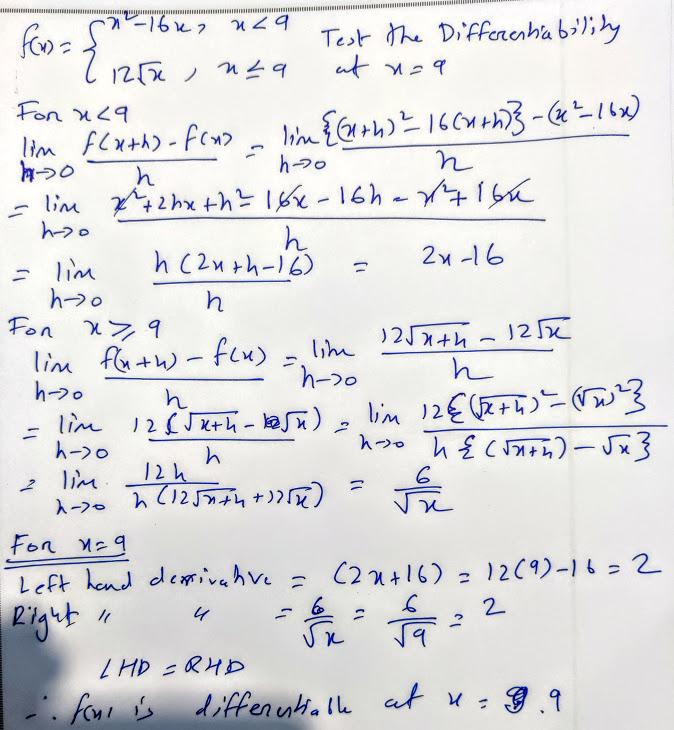 f(x) = { x²-16x, x<9 Test the Differentiability
12√x, x≤9 at x=9
For x<9
lim h→0 f(x+h)-f(x) / h = lim h→0 {(x+h)²-16(x+h)}-(x²-16x) / h
= lim h→0 x²+2hx+h²-16x-16h-x²+16x / h
= lim h→0 h(2x+h-16) / h = 2x-16
For x≥9
lim h→0 f(x+h)-f(x) / h = lim h→0 12√x+h - 12√x / h
= lim h→0 12{√x+h-√x) / h = lim h→0 12{(√x+h)²-(√x)²} / h{(√x+h)-√x}
= lim h→0 12h / h(12√x+h+12√x) = 6/√x
For x=9
Left hand derivative = (2x+16) = 12(9)-16 = 2
Right " " = 6/√x = 6/√9 = 2
LHD = RHD
∴ f(x) is differentiable at x = 9